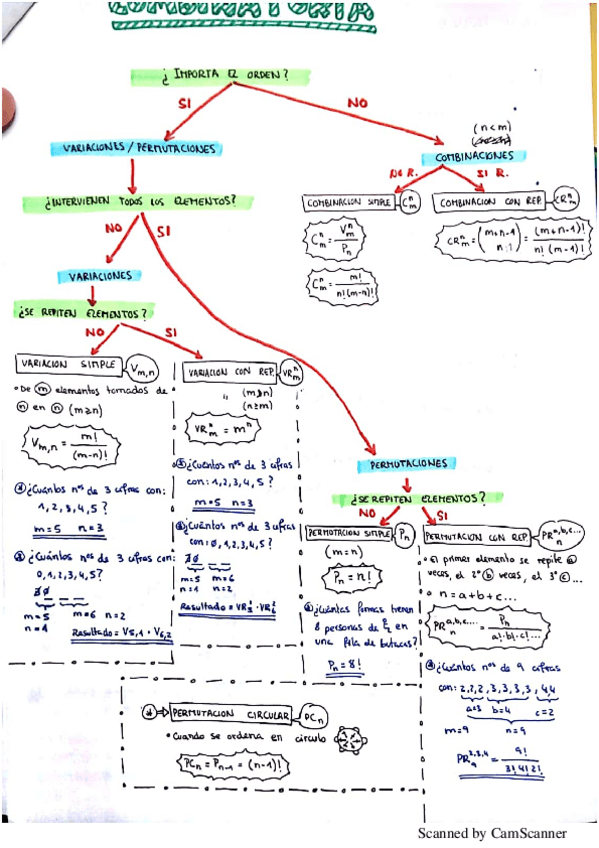 COMBINATORIA
¿IMPORTA EL ORDEN?
SI
NO
VARIACIONES/PERMUTACIONES
(n<m)
COMBINACIONES
NO R.
SI R.
¿INTERVIENEN TODOS LOS ELEMENTOS?
COMBINACION SIMPLE C_m^n
COMBINACION CON REP. CR_m^n
NO
SI
C_m^n = V_m^n / P_n
CR_m^n = (m+n-1 n) = (m+n-1)! / n!(m-1)!
C_m^n = m! / n!(m-n)!
VARIACIONES
¿SE REPITEN ELEMENTOS?
NO
SI
VARIACION SIMPLE V_m,n
• De m elementos tomados de
n en n (m≥n)
V_m,n = m! / (m-n)!
¿Cuántos nºs de 3 cifras con:
1,2,3,4,5?
m=5 n=3
¿Cuántos nºs de 3 cifras con:
0,1,2,3,4,5?
m=5 m=6 n=2
n=1
Resultado = V5,1 · V6,2
VARIACION CON REP. VR_m^n
(m≥n)
(n≥m)
VR_m^n = m^n
¿Cuántos nºs de 3 cifras
con: 1,2,3,4,5?
m=5 n=3
¿Cuántos nºs de 3 cifras
con: 0,1,2,3,4,5?
m=5 m=6
n=1 n=2
Resultado = VR_5^1 · VR_6^2
PERMUTACIONES
¿SE REPITEN ELEMENTOS?
NO
SI
PERMUTACION SIMPLE P_n
(m=n)
P_n = n!
¿Cuántas formas tienen
8 personas de
una fila de butacas?
P_n = 8!
PERMUTACION CON REP. PR_n^a,b,c...
• El primer elemento se repite a
veces, el 2º b veces, el 3º c...
• n = a+b+c...
PR_n^a,b,c... = P_n / a!·b!·c!...
¿Cuántos nºs de 9 cifras
con: 2,2,2,3,3,3,3,4,4
a=3 b=4 c=2
m=9 n=9
PR_9^2,3,4 = 9! / 3!4!2!
PERMUTACION CIRCULAR PC_n
• Cuando se ordena en círculo
PC_n = P_n-1 = (n-1)!
Scanned by CamScanner